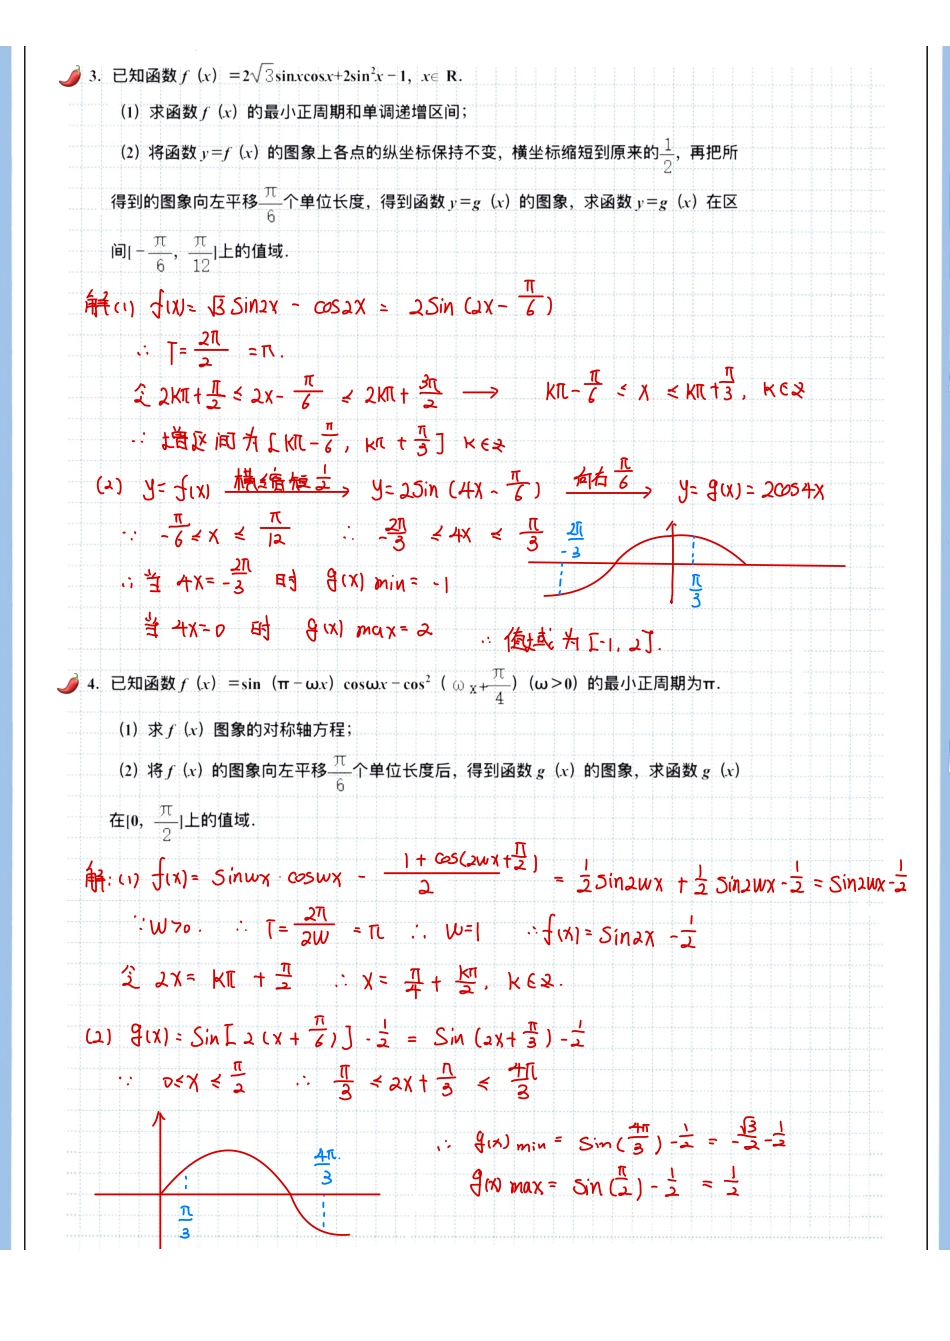 3. 已知函数 f（x）=2√3sinxcosx+2sin²x－1，x∈R.
（1）求函数 f（x）的最小正周期和单调递增区间；
（2）将函数 y=f（x）的图象上各点的纵坐标保持不变，横坐标缩短到原来的1/2，再把所
得到的图象向左平移π/6个单位长度，得到函数 y=g（x）的图象，求函数 y=g（x）在区
间[－π/6，π/12]上的值域.
解(1) f(x)= √3 Sin2x - cos2x = 2Sin(2x-π/6)
∴ T=2π/2 =π.
令 2kπ+π/2 ≤ 2x-π/6 ≤ 2kπ+3π/2 ⟶ kπ-π/6 ≤ x ≤ kπ+π/3, k∈Z
∴ 增区间为[kπ-π/6, kπ+π/3] k∈Z
(2) y=f(x) 横缩短1/2⟶ y=2Sin(4x-π/6) 向右π/6⟶ y=g(x)=2cos4x
∵ -π/6≤x≤π/12 ∴ -2π/3 ≤4x≤ π/3
-2π/3
π/3
∴当 4x=-2π/3 时 g(x)min=-1
当 4x=0 时 g(x)max=2 ∴ 值域为[-1, 2].
4. 已知函数 f（x）=sin（π－ωx）cosωx－cos²（ωx+π/4）（ω>0）的最小正周期为π.
（1）求 f（x）图象的对称轴方程；
（2）将 f（x）的图象向左平移π/6个单位长度后，得到函数 g（x）的图象，求函数 g（x）
在[0，π/2]上的值域.
解:(1) f(x)= Sinwx·coswx - (1+cos(2wx+π/2))/2 = 1/2Sin2wx + 1/2Sin2wx-1/2=Sin2wx-1/2
∵W>0. ∴ T=2π/2W =π ∴ W=1 ∴f(x)=Sin2x-1/2
令 2x= kπ+π/2 ∴ x=π/4+kπ/2, k∈Z.
(2) g(x)=Sin[2(x+π/6)]-1/2 = Sin(2x+π/3)-1/2
∵ 0≤x≤π/2 ∴ π/3 ≤2x+π/3 ≤ 4π/3
∴ g(x)min = Sin(4π/3)-1/2 = -√3/2-1/2
g(x)max= Sin(π/2)-1/2 = 1/2
4π/3
π/3